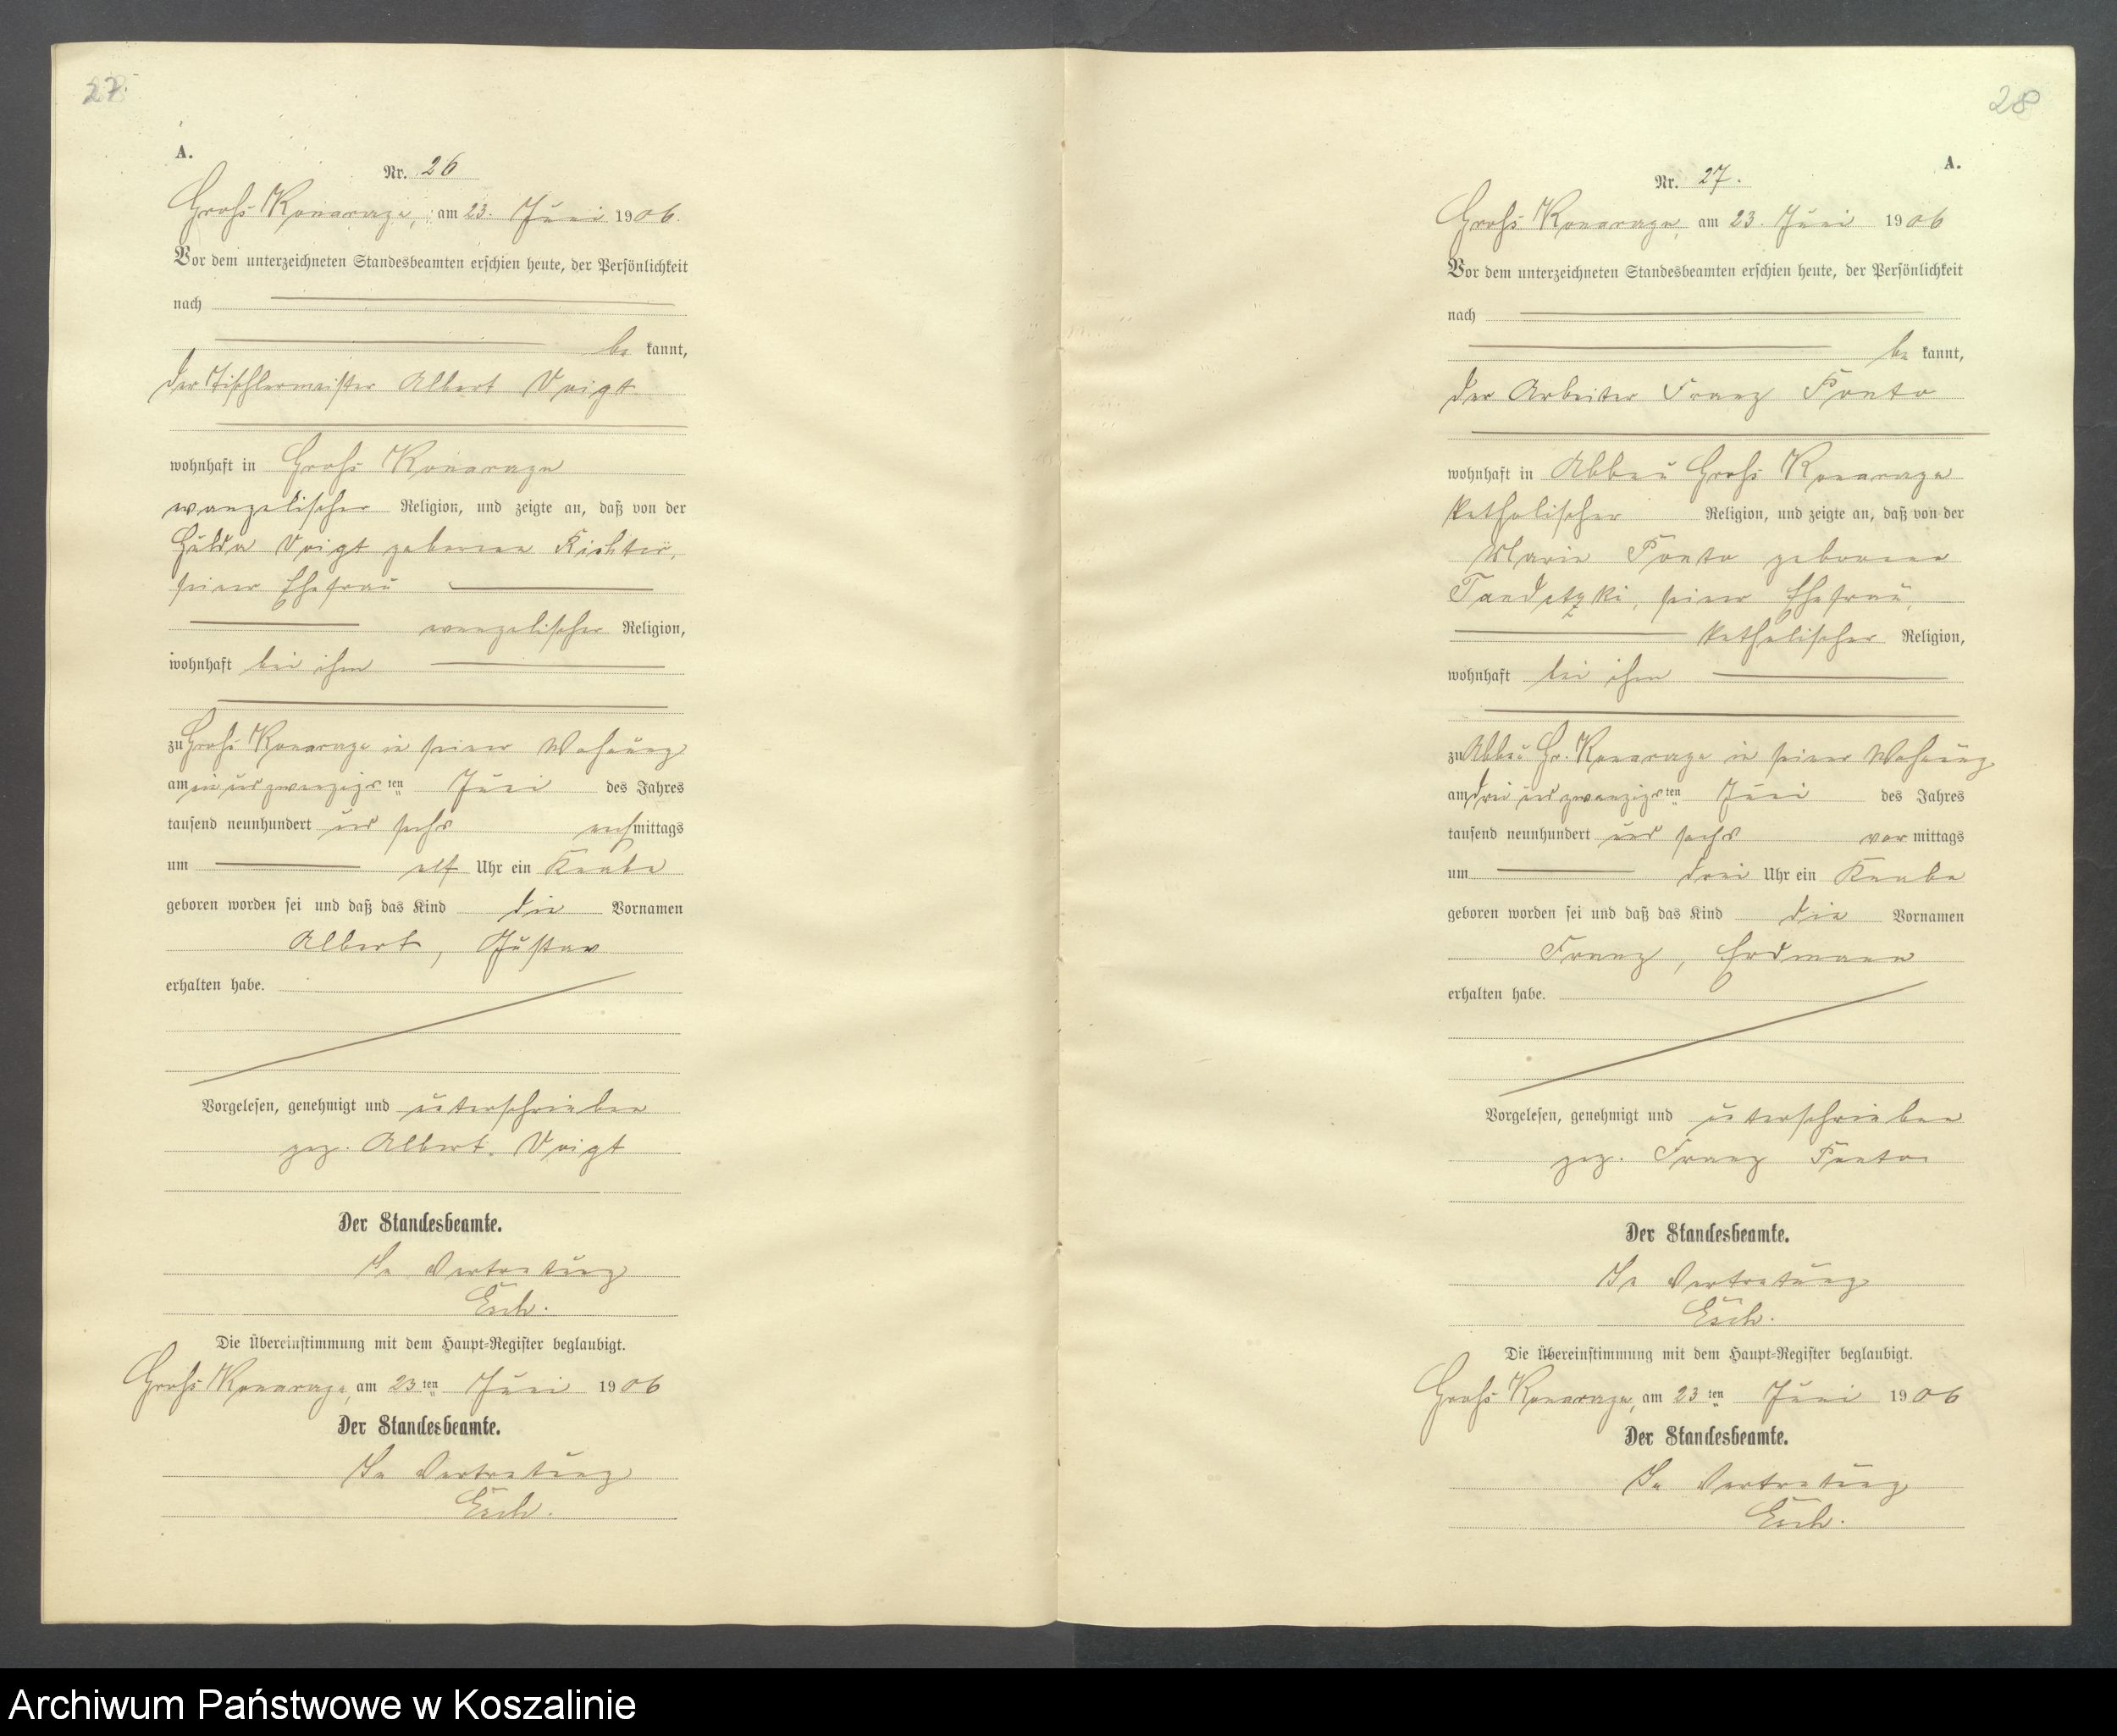 27.
A.
Nr. 26
Groß Konarzyn, am 23. Juni 1906.
Vor dem unterzeichneten Standesbeamten erschien heute, der Persönlichkeit
nach
be kannt,
der Tischlermeister Albert Voigt
wohnhaft in Groß Konarzyn
evangelischer Religion, und zeigte an, daß von der
Hulda Voigt geborene Richter,
seiner Ehefrau
evangelischer Religion,
wohnhaft bei ihm
zu Groß Konarzyn in seiner Wohnung
am ein und zwanzigsten Juni des Jahres
tausend neunhundert und sechs nachmittags
um elf Uhr ein Knabe
geboren worden sei und daß das Kind die Vornamen
Albert, Gustav
erhalten habe.
Vorgelesen, genehmigt und unterschrieben
gez. Albert Voigt
Der Standesbeamte.
In Vertretung
Esch.
Die Übereinstimmung mit dem Haupt-Register beglaubigt.
Groß Konarzyn, am 23ten Juni 1906
Der Standesbeamte.
In Vertretung
Esch.
28
A.
Nr. 27.
Groß Konarzyn, am 23. Juni 1906
Vor dem unterzeichneten Standesbeamten erschien heute, der Persönlichkeit
nach
be kannt,
der Arbeiter Franz Ponto
wohnhaft in Abbau Groß Konarzyn
katholischer Religion, und zeigte an, daß von der
Marie Ponto geborene
Tandetzki, seiner Ehefrau,
katholischer Religion,
wohnhaft bei ihm
zu Abbau Gr. Konarzyn in seiner Wohnung
am drei und zwanzigsten Juni des Jahres
tausend neunhundert und sechs vor mittags
um drei Uhr ein Knabe
geboren worden sei und daß das Kind die Vornamen
Franz, Erdmann
erhalten habe.
Vorgelesen, genehmigt und unterschrieben
gez. Franz Ponto
Der Standesbeamte.
In Vertretung
Esch.
Die Übereinstimmung mit dem Haupt-Register beglaubigt.
Groß Konarzyn, am 23ten Juni 1906
Der Standesbeamte.
In Vertretung
Esch.
Archiwum Państwowe w Koszalinie